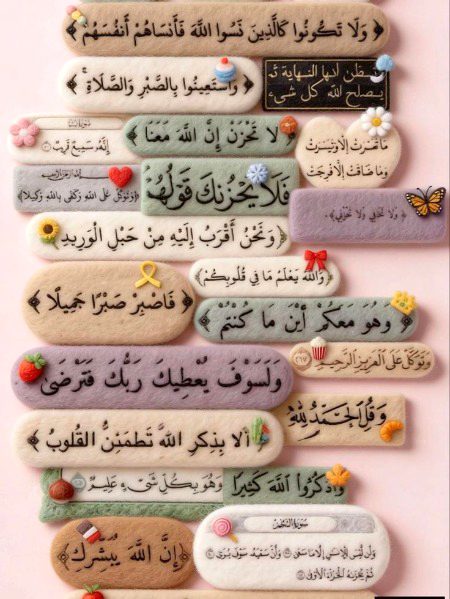 ﴿ وَلَا تَكُونُوا كَالَّذِينَ نَسُوا اللَّهَ فَأَنسَاهُمْ أَنفُسَهُمْ ﴾
﴿ وَاسْتَعِينُوا بِالصَّبْرِ وَالصَّلَاةِ ۚ ﴾
ستظن أنها النهاية ثم
يصلح الله كل شيء
﴿ لَا تَحْزَنْ إِنَّ اللَّهَ مَعَنَا ﴾
إِنَّهُ سَمِيعٌ قَرِيبٌ
مَا تَعَسَّرَتْ إِلَّا وَتَيَسَّرَتْ
وَمَا ضَاقَتْ إِلَّا فُرِجَتْ
فَلَا يَحْزُنكَ قَوْلُهُمْ
﴿وَتَوَكَّلْ عَلَى اللَّهِ وَكَفَى بِاللَّهِ وَكِيلًا﴾
﴿ وَلَا تَخَافِي وَلَا تَحْزَنِي ﴾.
﴿ وَنَحْنُ أَقْرَبُ إِلَيْهِ مِنْ حَبْلِ الْوَرِيدِ ﴾
﴿وَاللَّهُ يَعْلَمُ مَا فِي قُلُوبِكُمْ﴾
﴿ فَاصْبِرْ صَبْرًا جَمِيلًا ﴾
﴿ وَهُوَ مَعَكُمْ أَيْنَ مَا كُنْتُمْ ﴾
وَتَوَكَّلْ عَلَى الْعَزِيزِ الرَّحِيمِ ٢١٧
وَلَسَوْفَ يُعْطِيكَ رَبُّكَ فَتَرْضَىٰ
وَقُلِ الْحَمْدُ لِلَّهِ
﴿ أَلَا بِذِكْرِ اللَّهِ تَطْمَئِنُّ الْقُلُوبُ ﴾
وَاذْكُرُوا اللَّهَ كَثِيرًا
وَهُوَ بِكُلِّ شَيْءٍ عَلِيمٌ
﴿إِنَّ اللَّهَ يُبَشِّرُكِ﴾
سُورَةُ النَّجْمِ
وَأَن لَّيْسَ لِلْإِنسَانِ إِلَّا مَا سَعَىٰ ٣٩ وَأَنَّ سَعْيَهُ سَوْفَ يُرَىٰ ٤٠
ثُمَّ يُجْزَاهُ الْجَزَاءَ الْأَوْفَىٰ ٤١